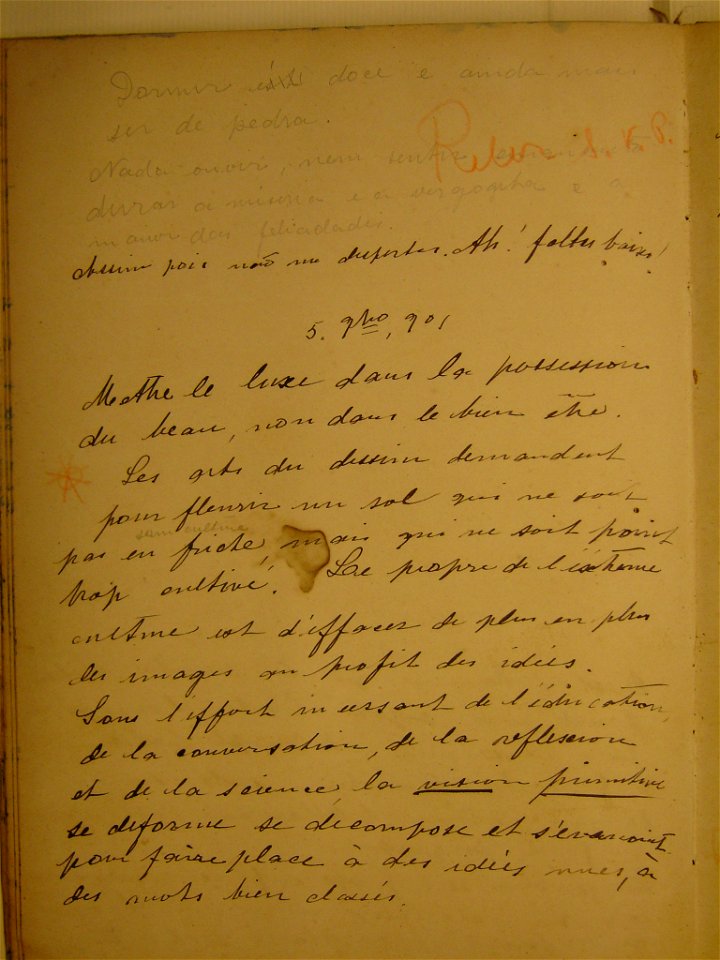 Dormir é doce e ainda mais
ser de pedra.
Nada ouvir, nem sentir, emquanto
durar a miseria e a vergogha e a
maior das felicidades.
Assim pois não me despertes. Ah! falles baixo!
5. 9bro, 901
Mettre le luxe dans la possession
du beau, non dans le bien être.
Les arts du dessin demandent
pour fleurir un sol qui ne soit
sans culture
pas en friche, mais qui ne soit point
trop cultivé. Le propre de l'extrême
culture est d'effacer de plus en plus
les images au profit des idées.
Sous l'effort incessant de l'éducation,
de la conversation, de la reflexion
et de la science, la vision primitive
se deforme se decompose et s'évanouit
pour faire place à des idées nues, à
des mots bien classés.